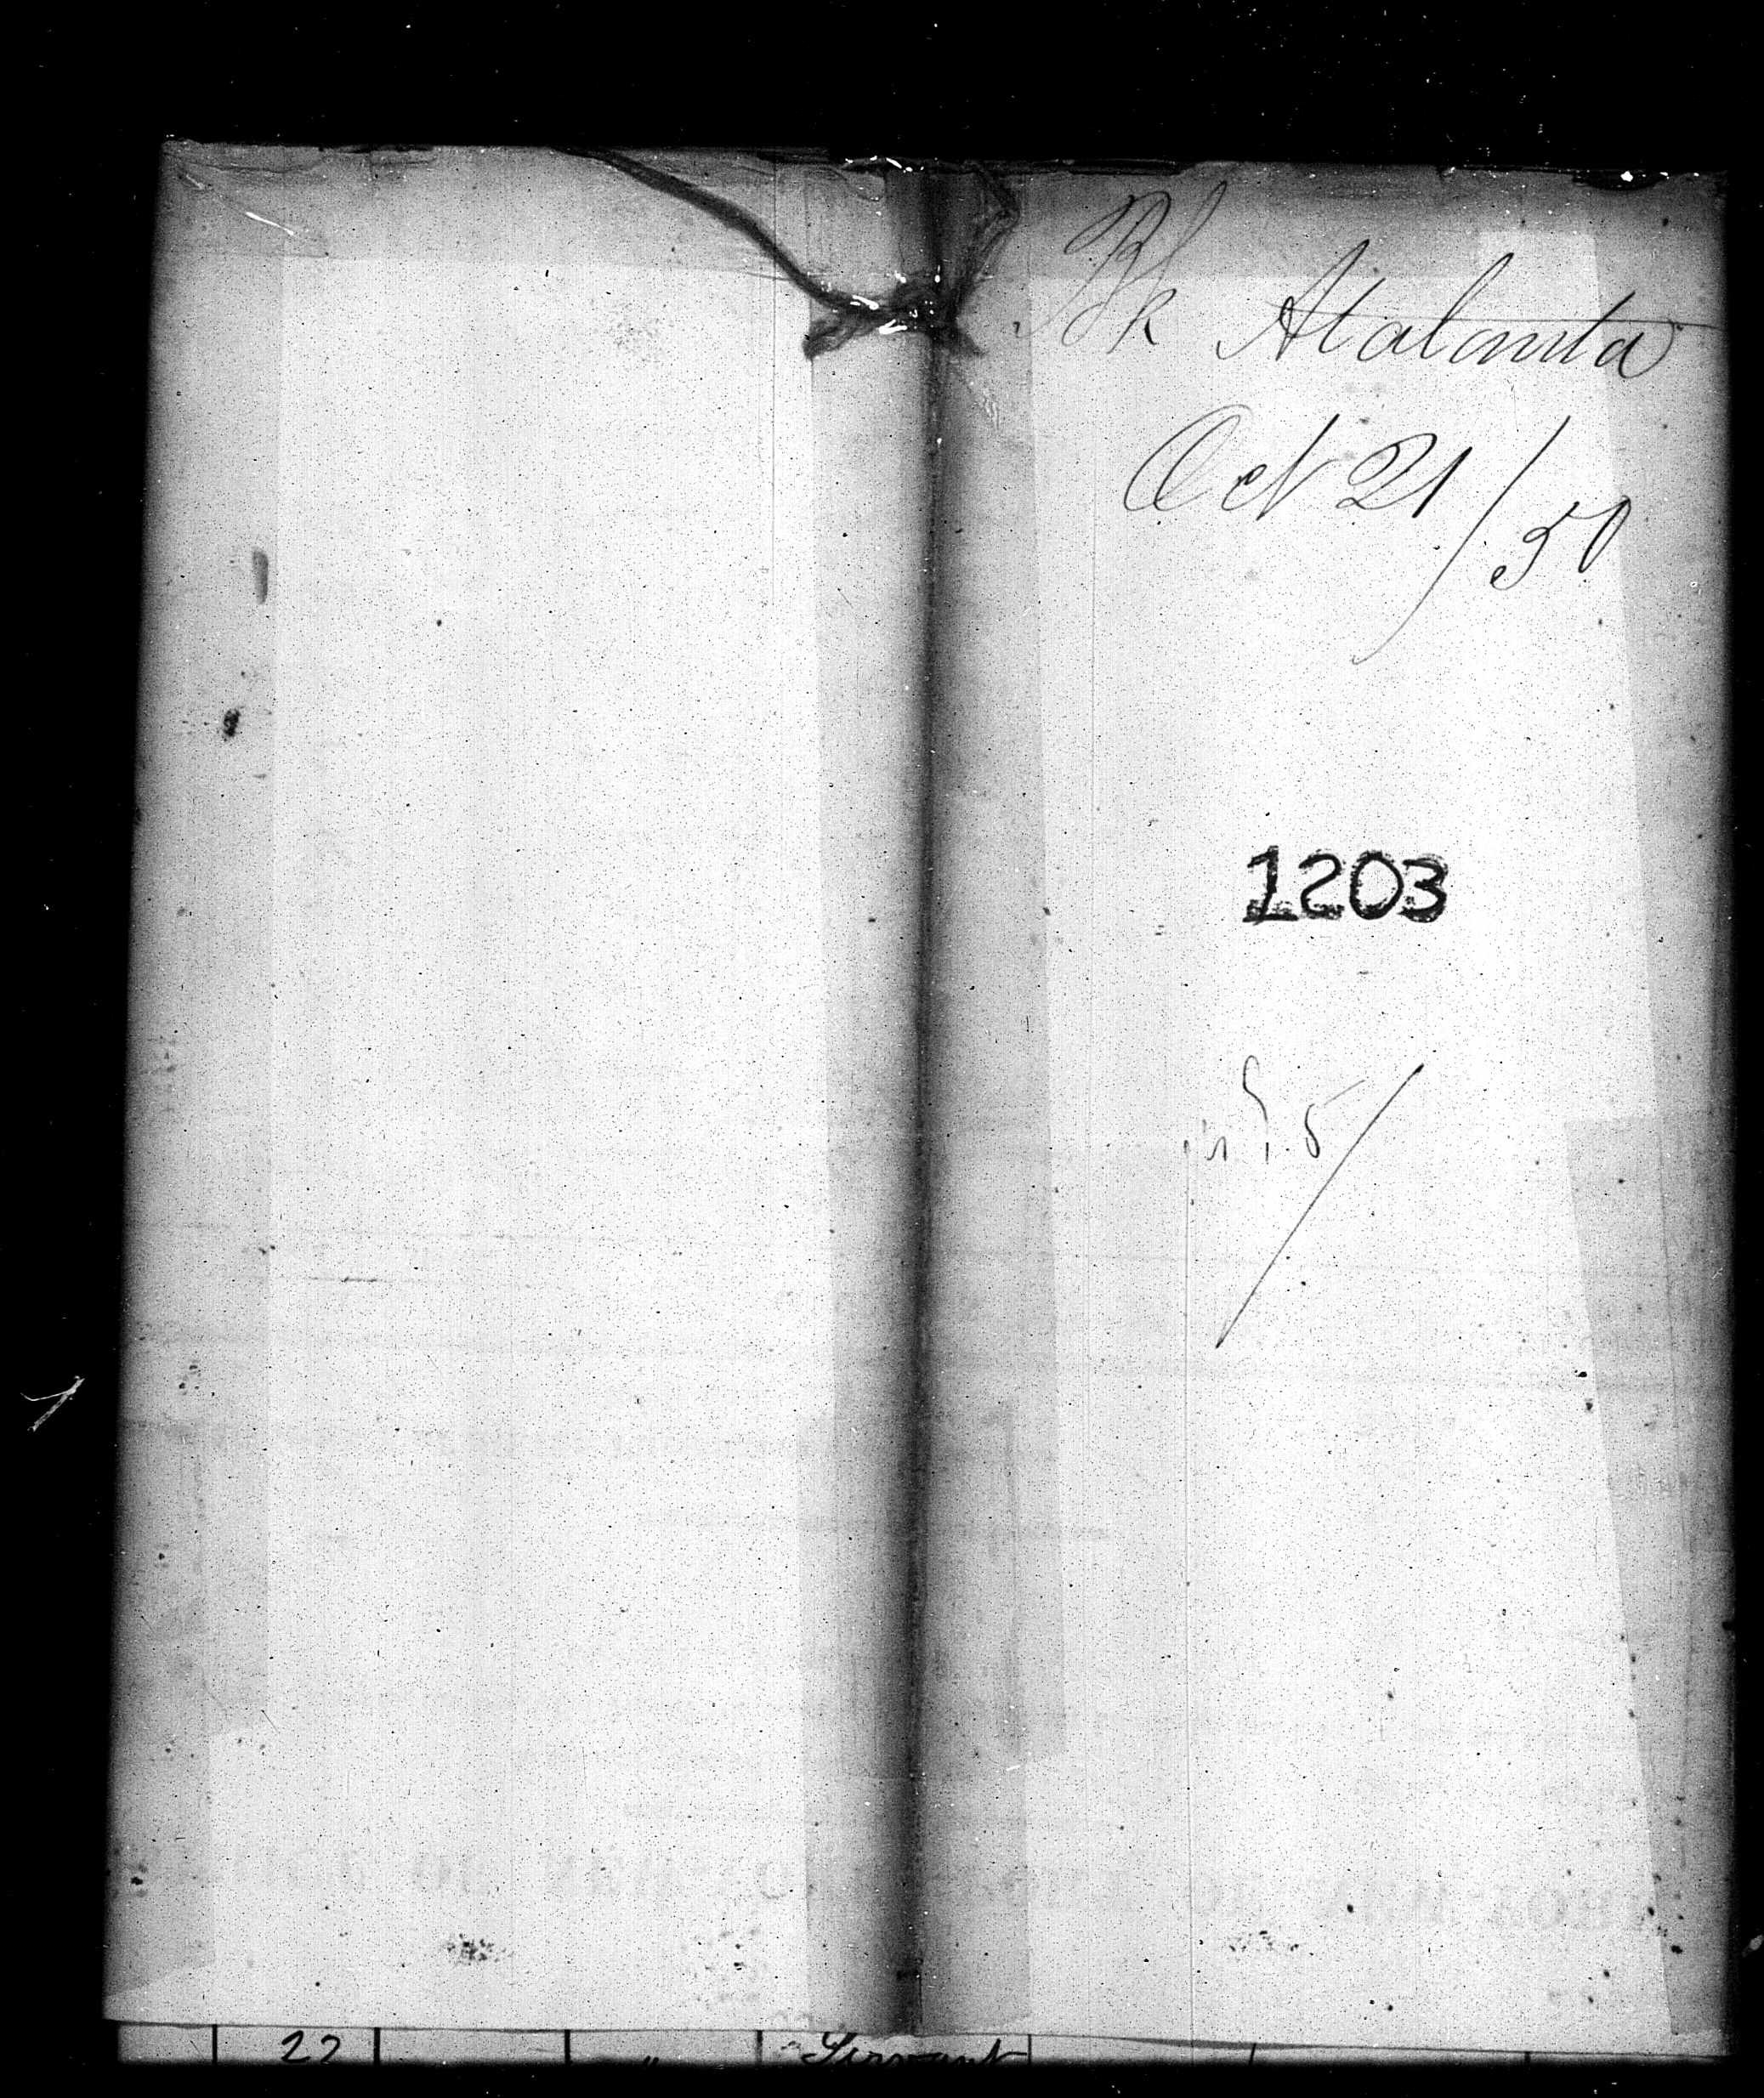 Bk Atalanta
Oct 21/50
1203
22 " Servant